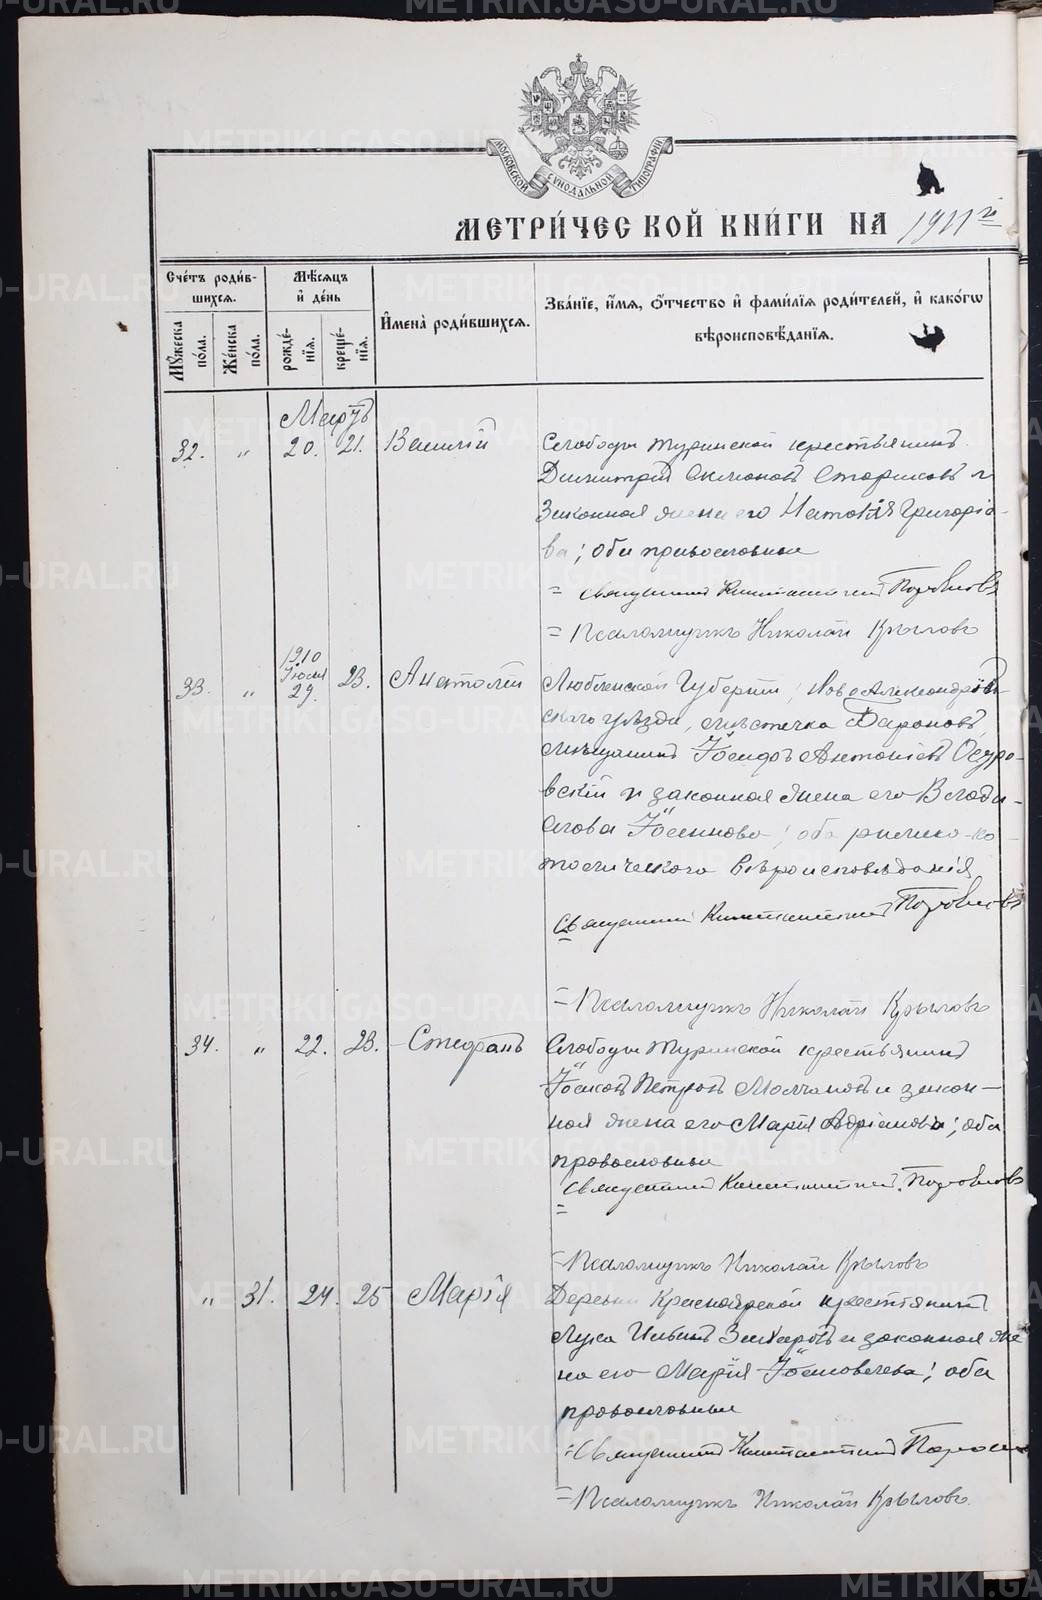 МОСКОВСКОЙ СѴНОДАЛЬНОЙ ТИПОГРАФІИ
МЕТРИ́ЧЕСКОЙ КНИ́ГИ НА 1911 г.
Сче́тъ роди́в-
шихся.
Мѣ́сяцъ
и҆ де́нь
И҆мена̀ роди́вшихся.
Зва́нїе, и҆́мя, ѻ҆́тчество и҆ фами́лїя роди́телей, и҆ како́гѡ
вѣроисповѣ́данїя.
Мꙋ́жеска по́ла.
Же́нска по́ла.
рожде́-нїя.
креще́-нїя.
Мартъ
32. " 20. 21. Василій
Слободы Туринской крестьянинъ
Димитрій Старицовъ и
Законная жена его Наталія Григоріе-
ва; оба православные
= Священникъ Константинъ
= Псаломщикъ Николай Крыловъ
1910
Іюля
33. " 29. 23. Анатолій
Люблинской Губерніи, Новоалександров-
скаго уѣзда, мѣстечка Баранов
мѣщанинъ Іосифъ Антоніевъ
вскій и законная жена его Влади-
слава Іосифова; оба римско-ка-
толическаго вѣроисповѣданія
Священникъ Константинъ
= Псаломщикъ Николай Крыловъ
34. " 22. 23. Стефанъ
Слободы Туринской крестьянинъ
Іаковъ Петровъ Молчановъ и закон-
ная жена его Марія Адріанова; оба
православные
Священникъ Константинъ
= Псаломщикъ Николай Крыловъ
" 31. 24. 25 Марія
Деревни Красноярской крестьянинъ
Лука Ильинъ Захаровъ и законная же
на его Марія Іаковлева; оба
православные
= Священникъ Константинъ
= Псаломщикъ Николай Крыловъ
METRIKI.GASO-URAL.RU